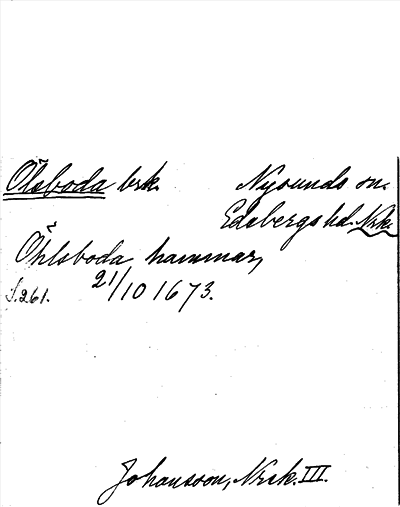 Ölsboda brk. Nysunds sn.
Edsbergs hd. Nrk.
Öhlsboda hammar,
S. 261. 21/10 1673.
Johansson, Nrsk. III.